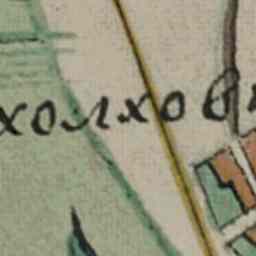 холхов